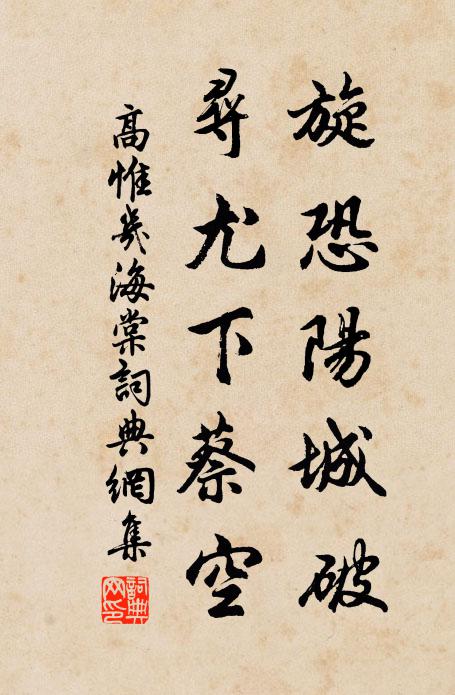 旋恐陽城破
尋尤下蔡空
高惟幾海棠詞典網集
詞典
网印